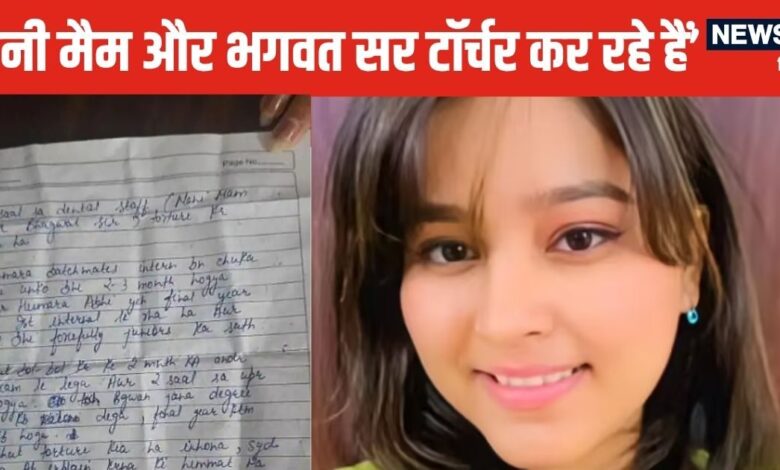 नी मैम और भगवत सर टॉर्चर कर रहे हैं’
NEWS
Page No.
saal sa dental staff, (Nani Mam
Bhagwat Sir) torture kr
ha
batchmates intern bn chuka
unko bhi 2-3 month hogya
Humara Abhi yeh final year
1st internal le rha ha Aur
forcefully juniors ka sath
bol-bol kr ke 2 month KA andr
exam le lega Aur 2 saal sa upr
hogya Bgwan jana degree
dega, final year
hoga
torture kia ha inhona,
krna ki himmat ha